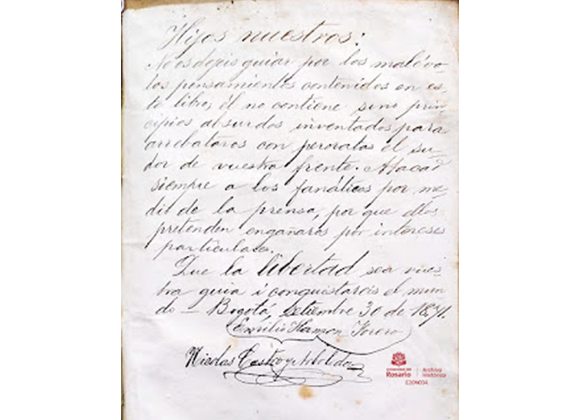 Hijos nuestros:
No os dejeis guiar por los malévo-
los pensamientos contenidos en es-
te libro, él no contiene sino prin-
cipios absurdos inventados para
arrebataros con peroratas el su-
dor de vuestra frente. Atacad
siempre a los fanáticos por me-
dio de la prensa, por que ellos
pretenden engañaros por intereses
particulares.
Que la libertad sea vues-
tra guia i conquistareis el mun-
do — Bogotá, Setiembre 30 de 1871.
Emilio Ramon Forero
Nicolas Castro y Arboleda
Universidad del
Rosario
Archivo
Histórico